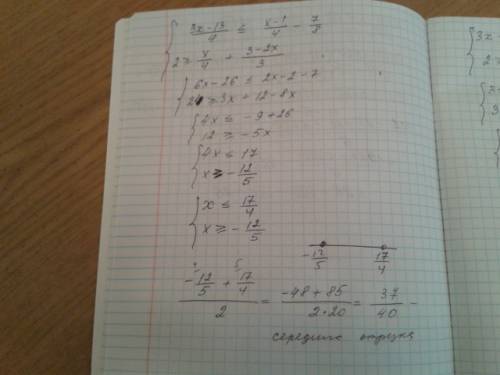 { (3x-13)/4 ≤ (x-1)/4 - 7/8
2 ≥ x/4 + (3-2x)/3
{ 6x-26 ≤ 2x-2-7
24 ≥ 3x + 12 - 8x
{ 4x ≤ -9+26
12 ≥ -5x
{ 4x ≤ 17
x ≥ -12/5
{ x ≤ 17/4
x ≥ -12/5
-12/5 17/4
(-12/5 + 17/4)/2 = (-48+85)/(2*20) = 37/40 -
середина отрезка
{ 3x
2 ≥
{ 3
3